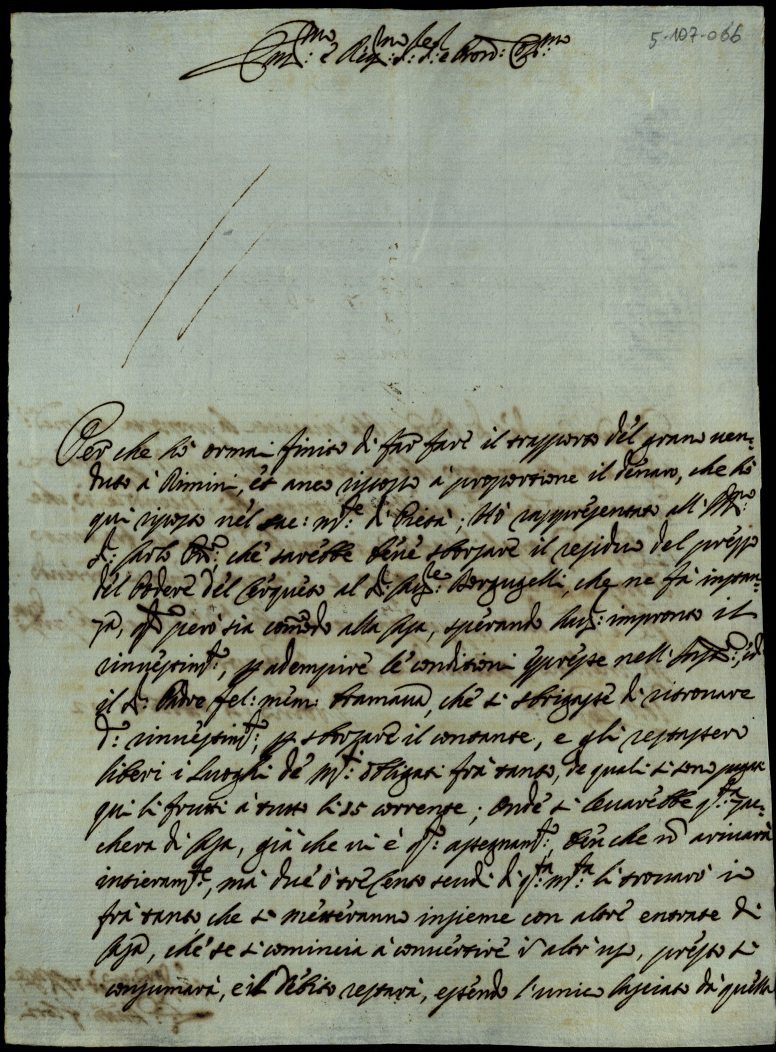 5-107-066
Em.mo e Rev.mo Sig.r Sig.r e Pron: Col.mo
Per che hò ormai finito di far fare il trapporto del grano uen-
duto à Rimini, et anco riscosso à proportione il denaro, che hò
qui riposto nel Sac: M.te di Pietà; Hò rappresentato all' Ill.mo
S: Carlo che sarebbe bene sborsare il residuo del prezzo
del Podere del Cerqueto al S: che ne fà instan-
za, q.do però sia comodo alla Casa, sperando improno il
rinuestim.to, p adempire le conditioni espresse nell' ed
il S: Padre fel: mem: bramaua, che si sbrigasse di ritrouare
d:o rinuestim.to, p sborsare il contante, e gli restassero
liberi i Luoghi de M.ti obligati frà tanto, de quali si son pagati
qui li frutti à tutto li 15 corrente; Onde si leuarebbe q.sta zac-
chera di Casa, già che ui è q.sto assegnam.to, benche nõ ariuarà
intieram.te, mà due ò tre cento scudi di q.sta m.ta li trouarò io
frà tanto che si metteranno insieme con altre entrate di
Casa, che se si comincia à conuertire ĩ altr' uso, presto si
consumarà, e il Debito restarà, essendo l'unico lasciato da quella